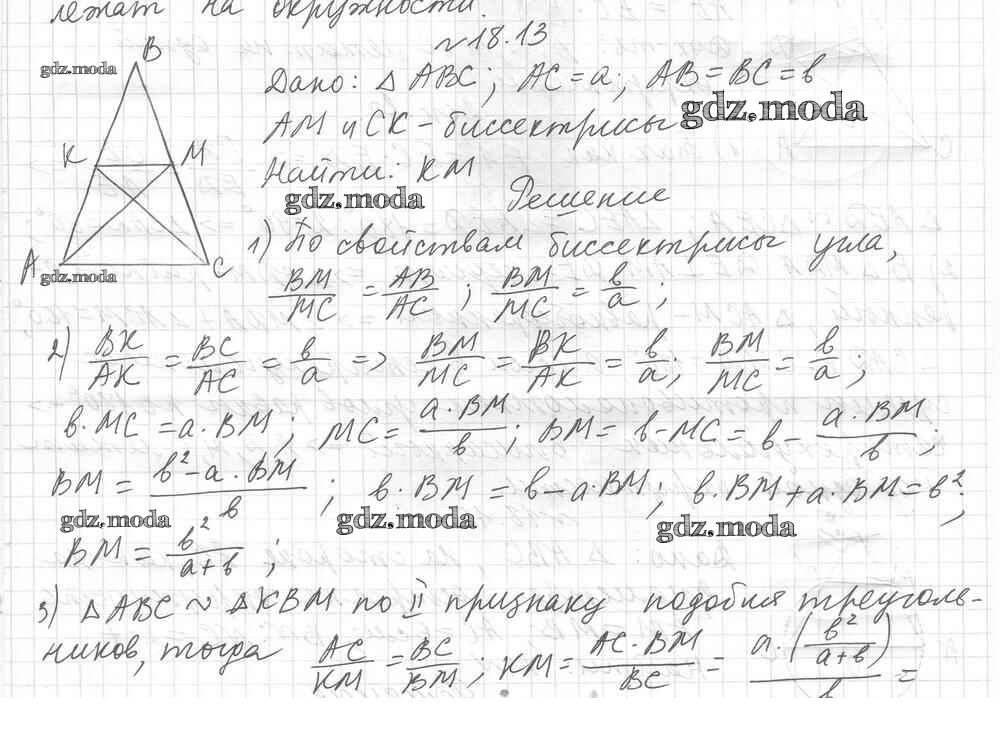 лежат на окружности.
~18.13
B
gdz.moda
Дано: △ABC; AC = a; AB = BC = b
gdz.moda
AM и CK - биссектрисы
K M
Найти: KM
gdz.moda
Решение
1) По свойствам биссектрисы угла,
A C
gdz.moda
BM/MC = AB/AC ; BM/MC = b/a ;
2) BK/AK = BC/AC = b/a => BM/MC = BK/AK = b/a; BM/MC = b/a ;
b·MC = a·BM; MC = a·BM/b; BM = b-MC = b - a·BM/b;
BM = b²-a·BM/b ; b·BM = b-a·BM; b·BM+a·BM = b²;
gdz.moda gdz.moda gdz.moda
BM = b²/a+b ;
3) △ABC ~ △KBM по II признаку подобия треуголь-
ников, тогда AC/KM = BC/BM ; KM = AC·BM/BC = a·(b²/a+b)/b =